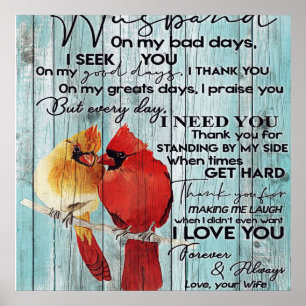 Husband
On my bad days,
I SEEK YOU
On my good days, I THANK YOU
On my greats days, I praise you
But every day,
I NEED YOU
Thank you for
STANDING BY MY SIDE
When times
GET HARD
Thank you for
MAKING ME LAUGH
when I didn't even want
I LOVE YOU
Forever
& Always
Love, your Wife